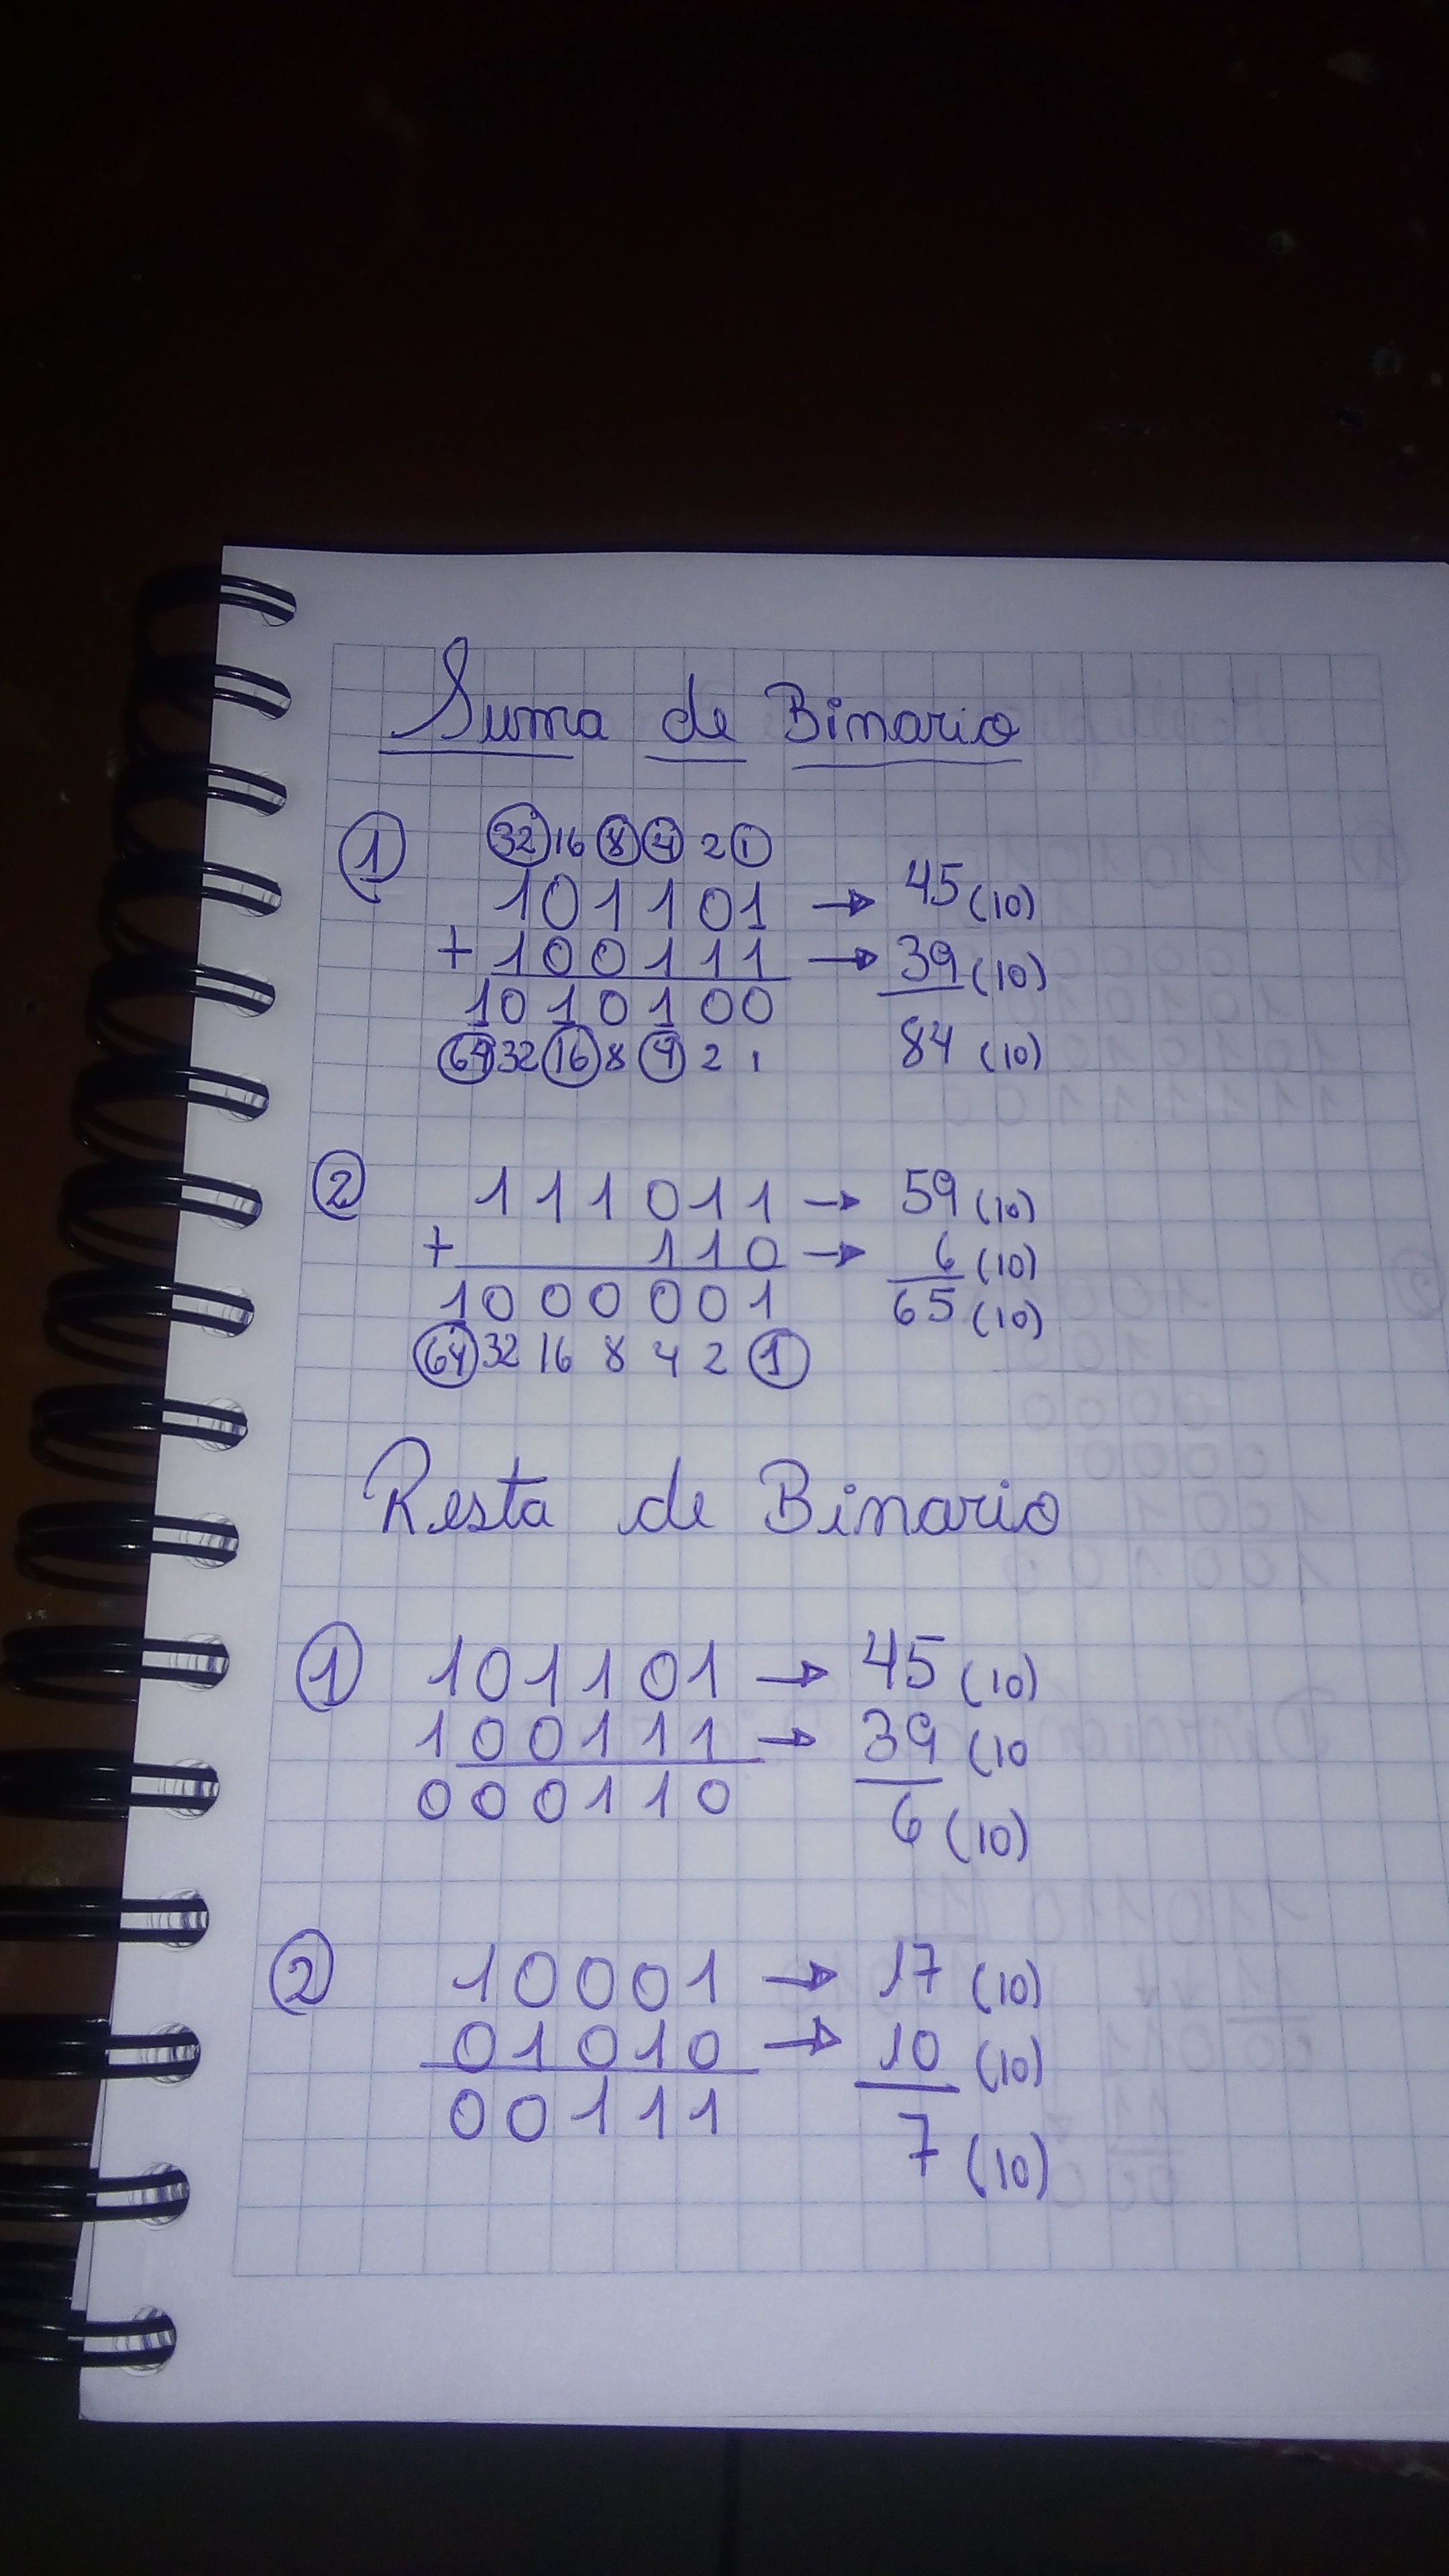 Suma de Binario
1 32 16 8 4 2 1
101101 → 45 (10)
+ 100111 → 39 (10)
1010100 84 (10)
64 32 16 8 4 2 1
2 111011 → 59 (10)
+ 110 → 6 (10)
1000001 65 (10)
64 32 16 8 4 2 1
Resta de Binario
1 101101 → 45 (10)
100111 → 39 (10
000110 6 (10)
2 10001 → 17 (10)
01010 → 10 (10)
00111 7 (10)